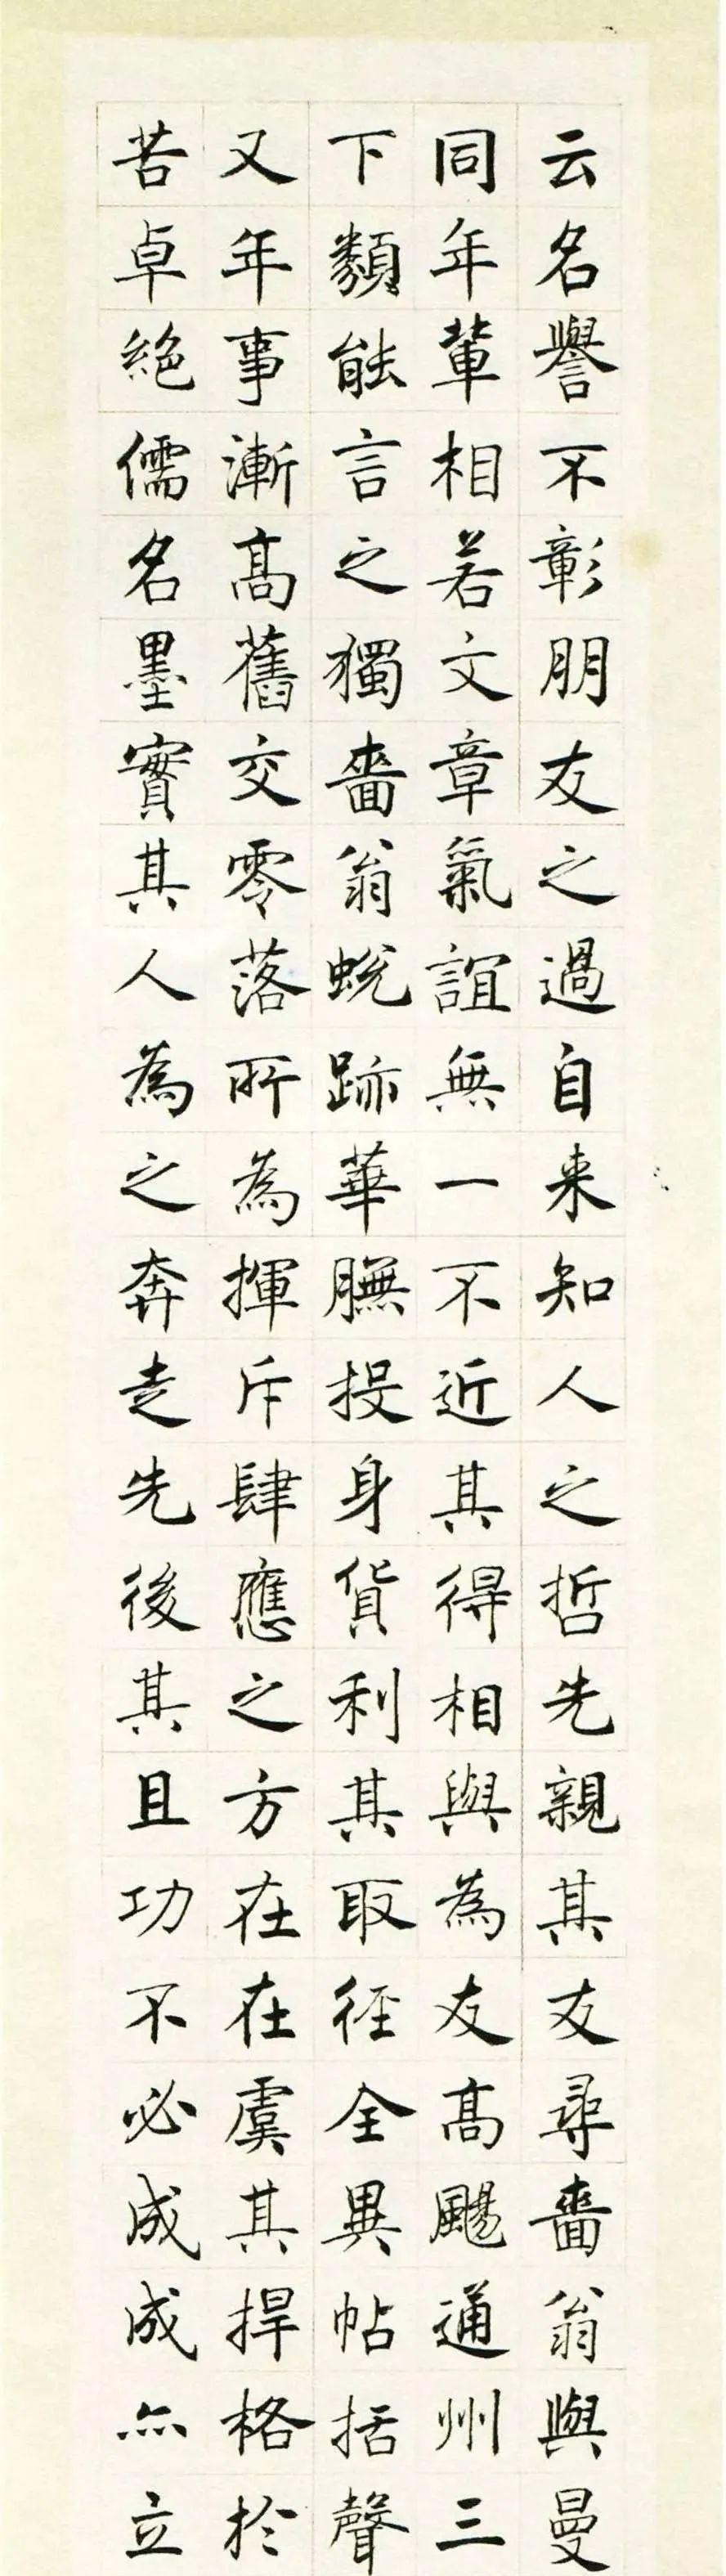 云名譽不彰朋友之過自来知人之哲先親其友尋嗇翁與曼
同年輩相若文章氣誼無一不近其得相與為友高颺通州三
下類能言之獨嗇翁蛻跡華膴投身貨利其取徑全異帖括聲
又年事漸高舊交零落所為揮斥肆應之方在在虞其捍格於
苦卓絕儒名墨實其人為之奔走先後其且功不必成成亦立